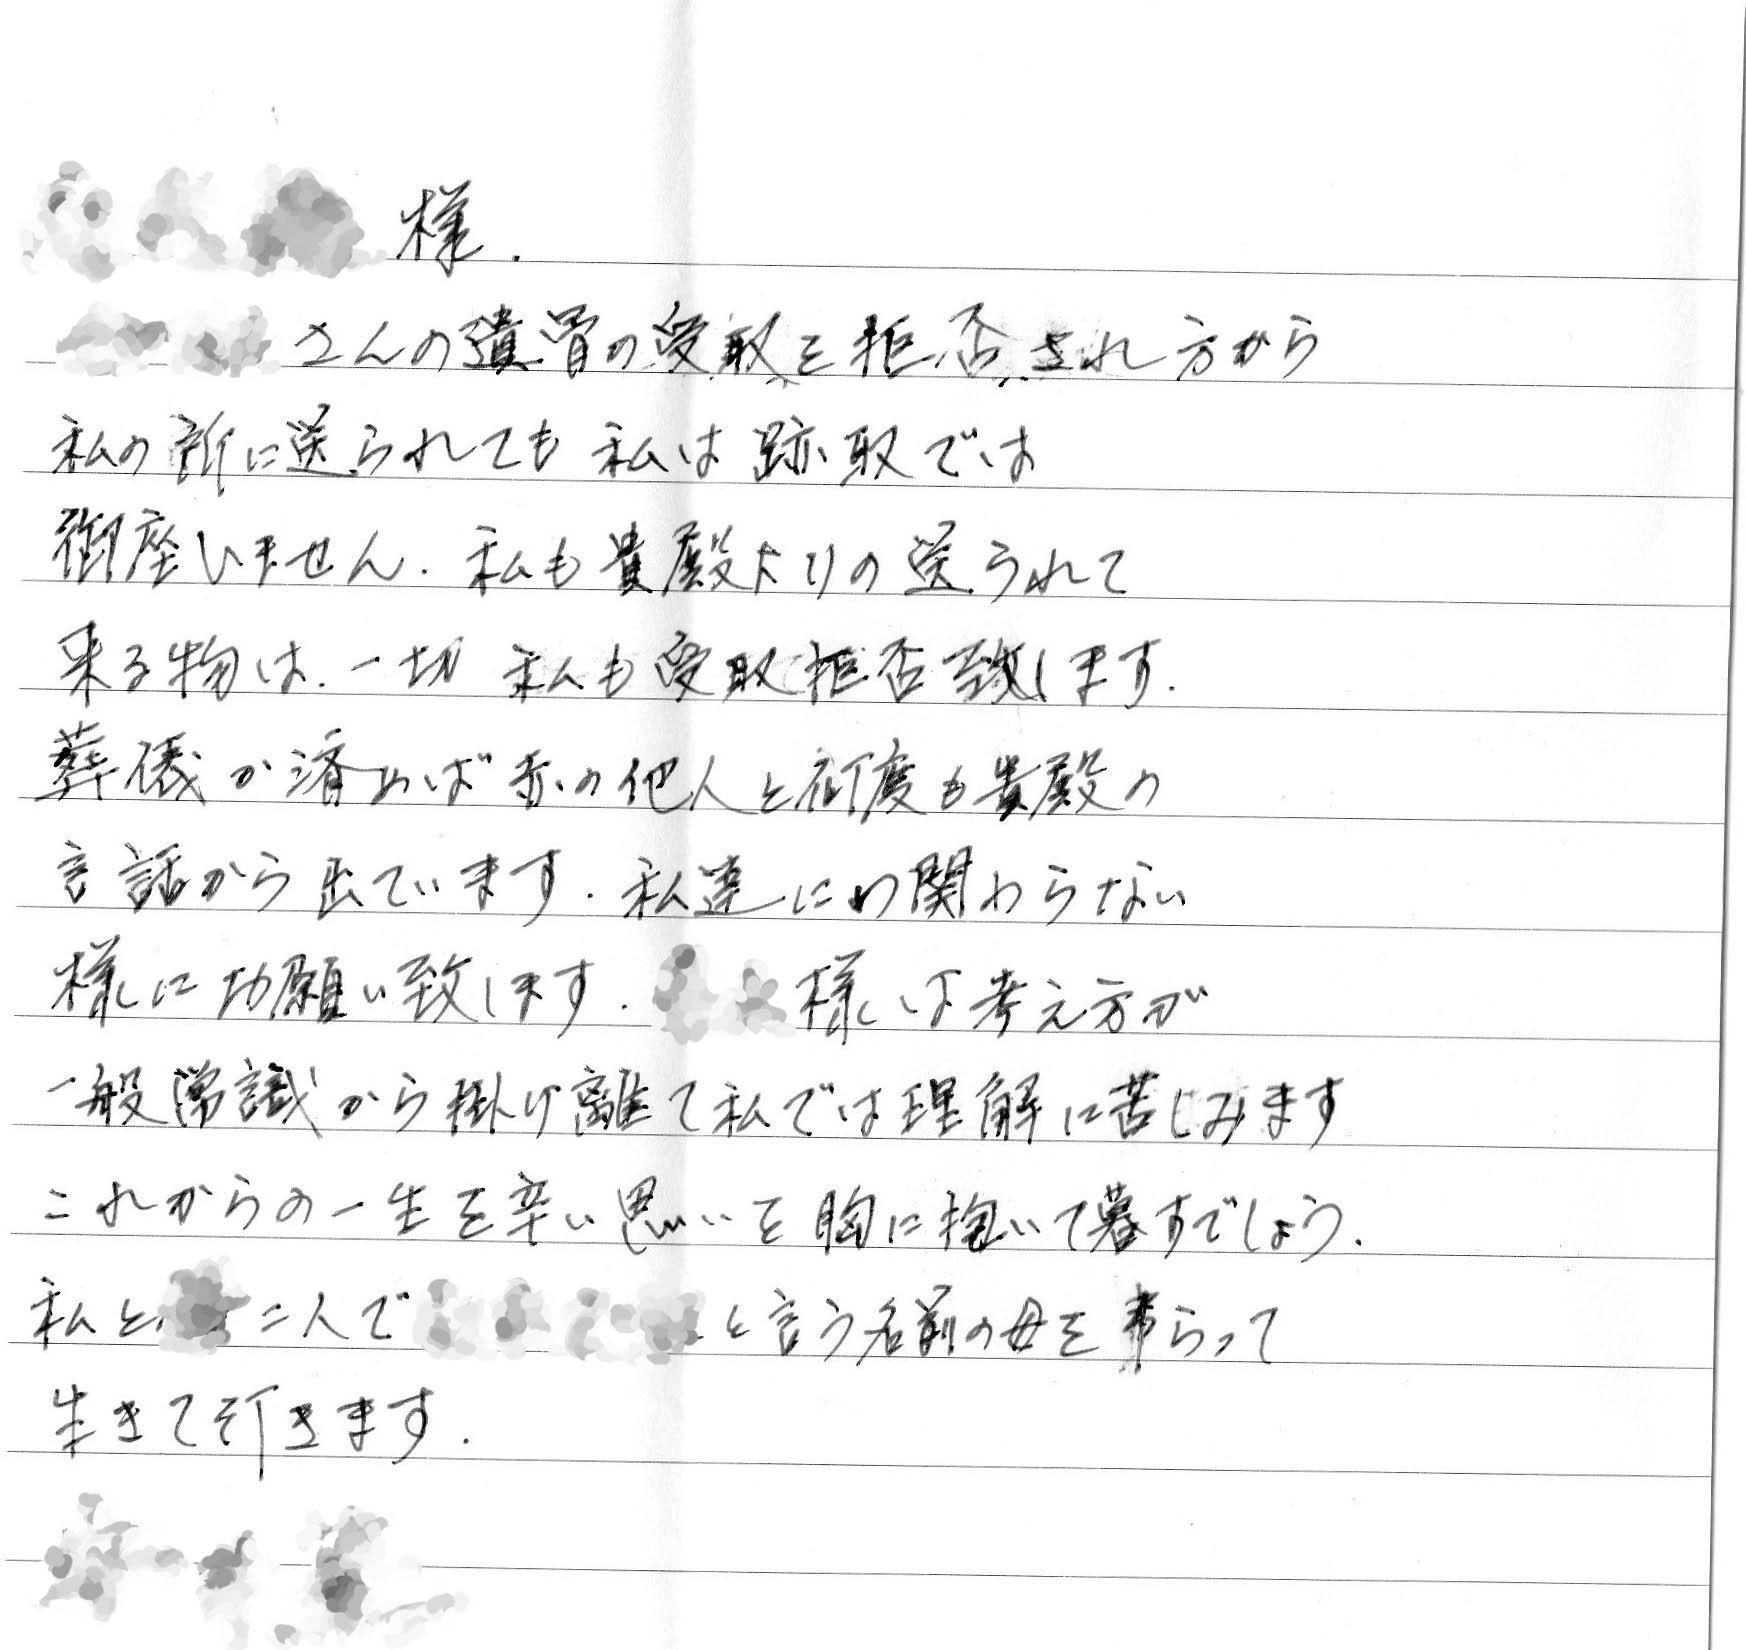 様.
さんの遺骨の受取を拒否され方から
私の所に送られても私は跡取では
御座いません. 私も貴殿よりの送られて
来る物は. 一切 私も受取拒否致します.
葬儀か済めば赤の他人と何度も貴殿の
言話から出ています. 私達にわ関わらない
様に切願い致します. 様は考え方が
一般常識から掛け離て私では理解に苦しみます
これからの一生を辛い思いを胸に抱いて暮すでしょう.
私と 二人で と言う名前の母を らって
生きて行きます.